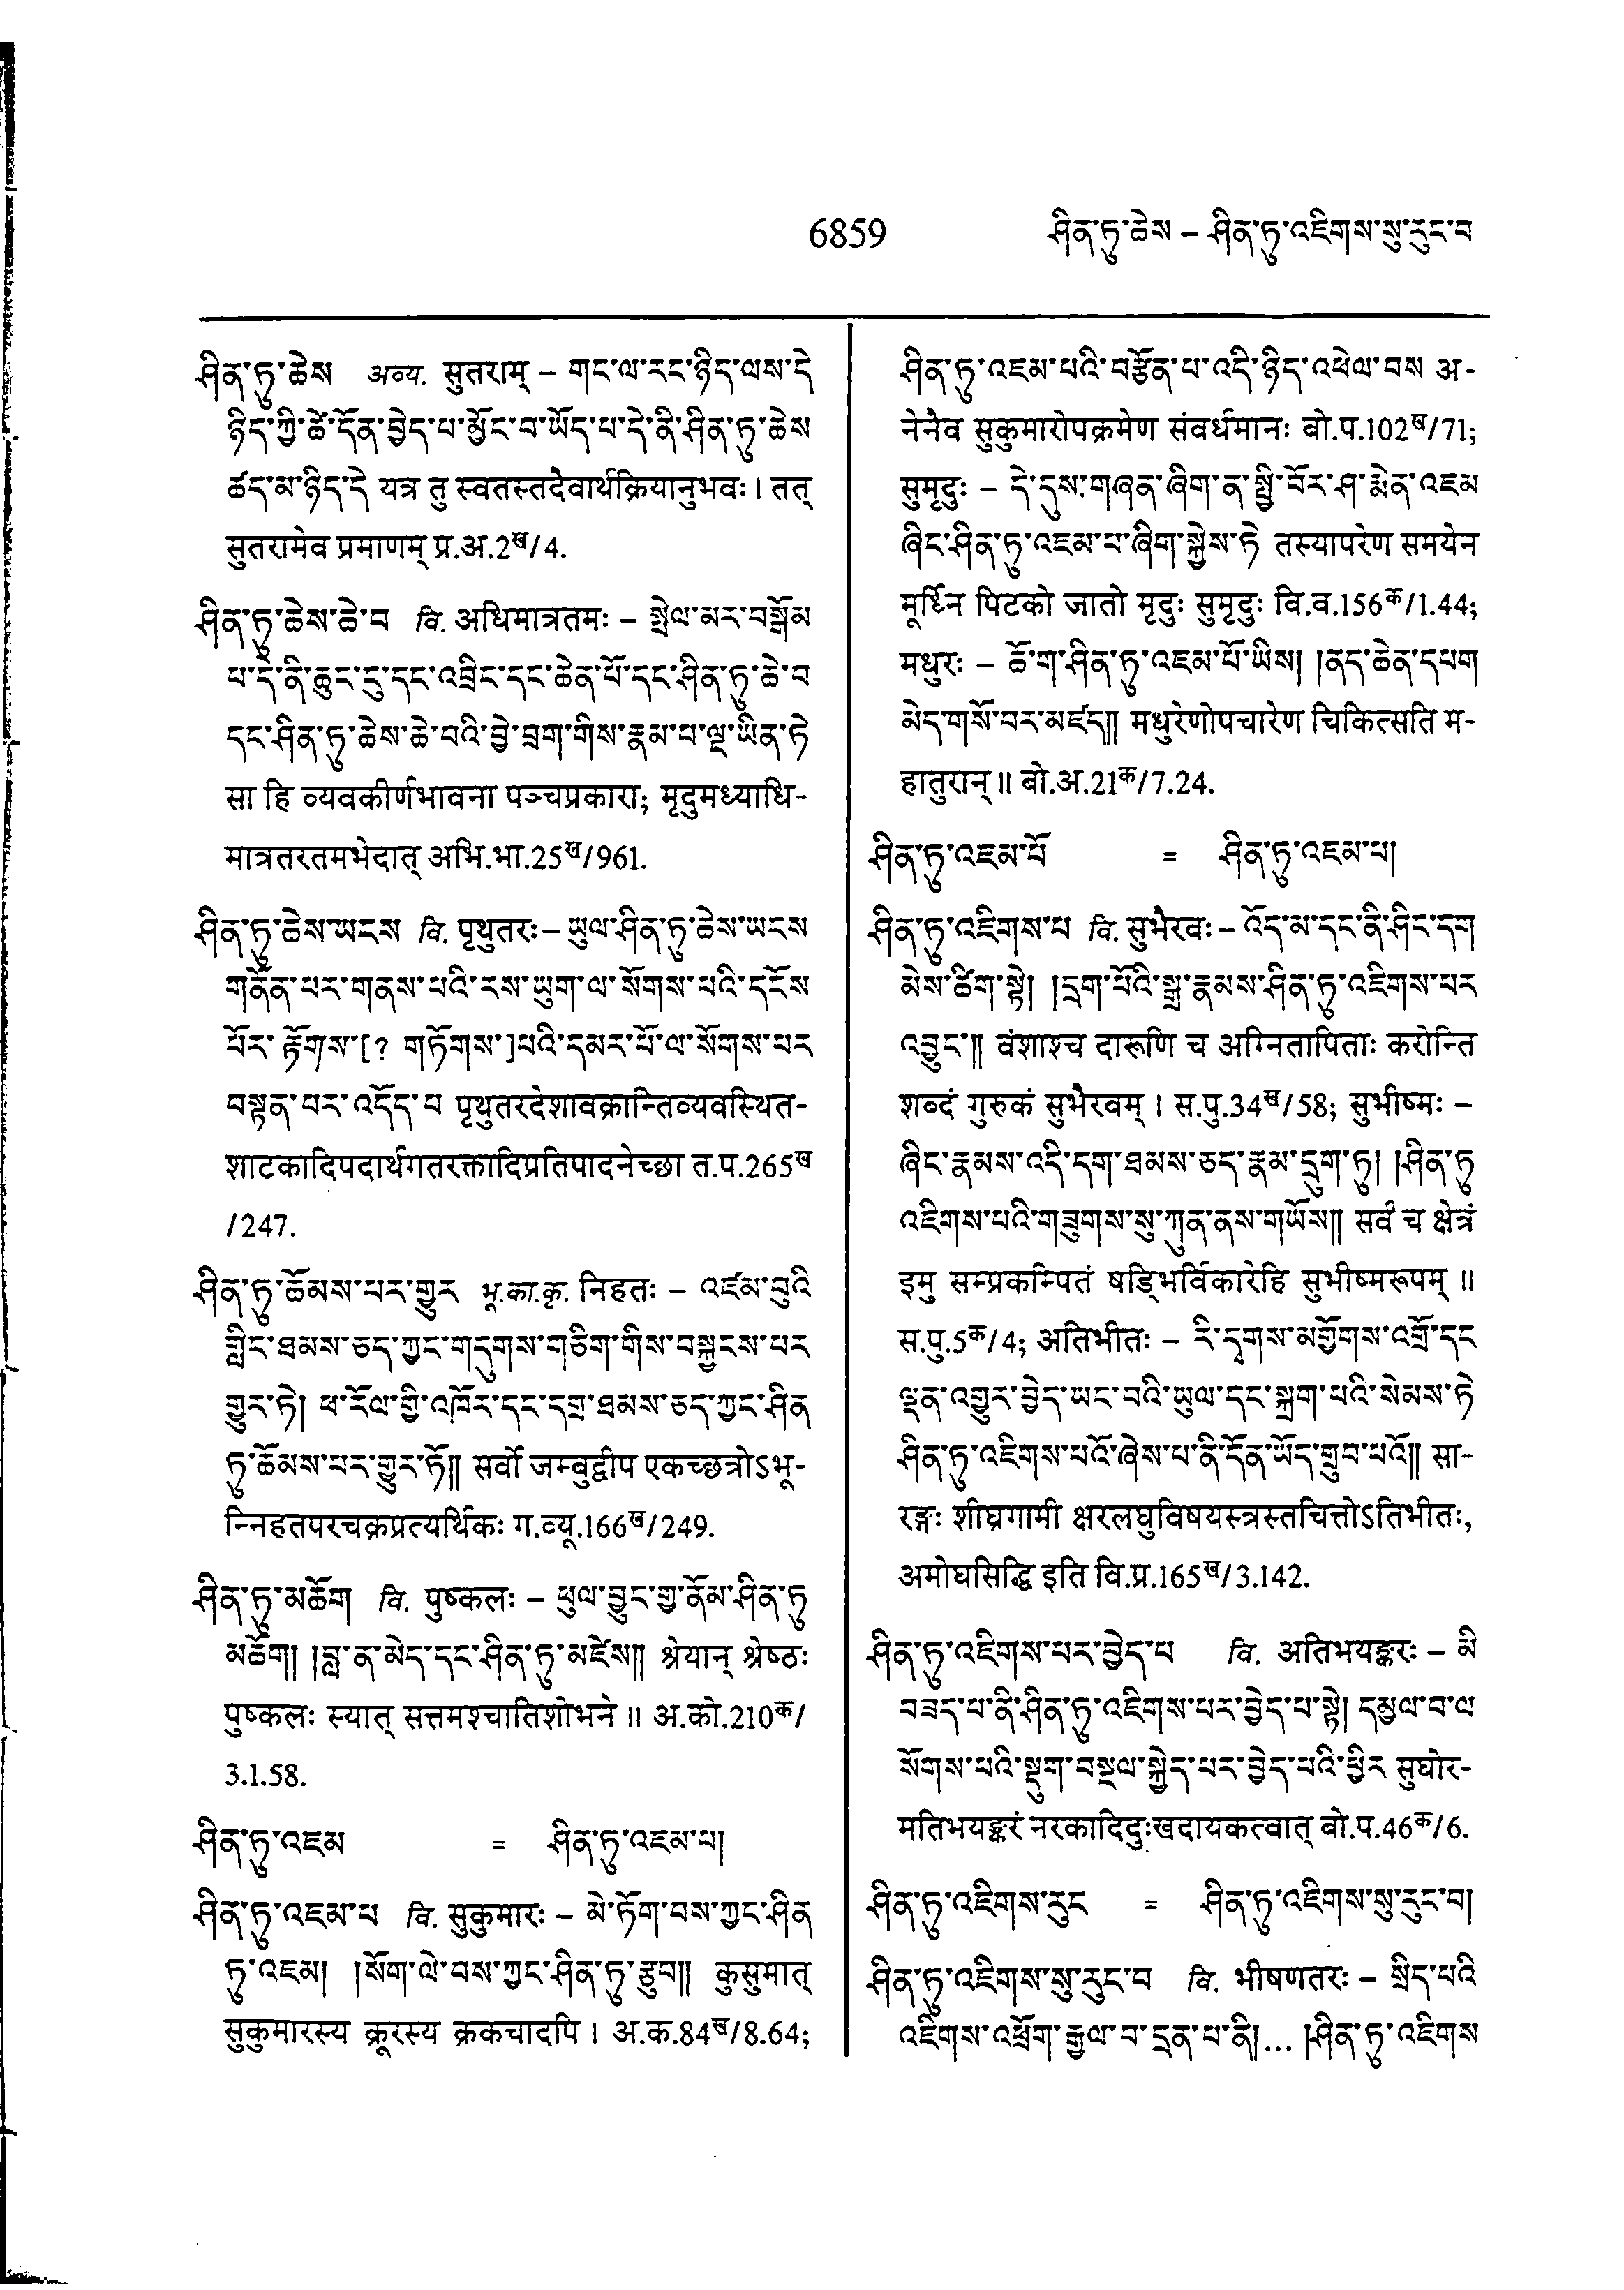 6859 ཤིན་ཏུ་ཆེས – ཤིན་ཏུ་འཇིགས་སུ་རུང་བ
ཤིན་ཏུ་ཆེས अव्य. सुतराम् – གང་ལ་རང་ཉིད་ལས་དེ
ཉིད་ཀྱི་ཚེ་དོན་བྱེད་པ་མྱོང་བ་ཡོད་པ་དེ་ནི་ཤིན་ཏུ་ཆེས
ཚད་མ་ཉིད་དེ यत्र तु स्वतस्तदैवार्थक्रियानुभवः । तत्
सुतरामेव प्रमाणम् प्र.अ.2ख/4.
ཤིན་ཏུ་ཆེས་ཆེ་བ वि. अधिमात्रतमः – སྤེལ་མར་བསྒོམ
པ་དེ་ནི་ཆུང་ངུ་དང་འབྲིང་དང་ཆེན་པོ་དང་ཤིན་ཏུ་ཆེ་བ
དང་ཤིན་ཏུ་ཆེས་ཆེ་བའི་བྱེ་བྲག་གིས་རྣམ་པ་ལྔ་ཡིན་ཏེ
सा हि व्यवकीर्णभावना पञ्चप्रकारा; मृदुमध्याधि-
मात्रतरतमभेदात् अभि.भा.25ख/961.
ཤིན་ཏུ་ཆེས་ཡངས वि. पृथुतरः – ཡུལ་ཤིན་ཏུ་ཆེས་ཡངས
གནོན་པར་གནས་པའི་རས་ཡུག་ལ་སོགས་པའི་དངོས
པོར་ རྟོགས་[? གཏོགས་]པའི་དམར་པོ་ལ་སོགས་པར
བསྟན་པར་འདོད་པ पृथुतरदेशावक्रान्तिव्यवस्थित-
शाटकादिपदार्थगतरक्तादिप्रतिपादनेच्छा त.प.265ख
/247.
ཤིན་ཏུ་ཆོམས་པར་གྱུར भू.का.कृ. निहतः – འཛམ་བུའི
གླིང་ཐམས་ཅད་ཀྱང་གདུགས་གཅིག་གིས་བསྐྱངས་པར
གྱུར་ཏེ། ཕ་རོལ་གྱི་འཁོར་དང་དགྲ་ཐམས་ཅད་ཀྱང་ཤིན
ཏུ་ཆོམས་པར་གྱུར་ཏོ།། सर्वो जम्बुद्वीप एकच्छत्रोऽभू-
न्निहतपरचक्रप्रत्यर्थिकः ग.व्यू.166ख/249.
ཤིན་ཏུ་མཆོག वि. पुष्कलः – ཕུལ་བྱུང་གྱ་ནོམ་ཤིན་ཏུ
མཆོག། །བླ་ན་མེད་དང་ཤིན་ཏུ་མཛེས།། श्रेयान् श्रेष्ठः
पुष्कलः स्यात् सत्तमश्चातिशोभने ॥ अ.को.210क/
3.1.58.
ཤིན་ཏུ་འཇམ = ཤིན་ཏུ་འཇམ་པ།
ཤིན་ཏུ་འཇམ་པ वि. सुकुमारः – མེ་ཏོག་བས་ཀྱང་ཤིན
ཏུ་འཇམ། །སོག་ལེ་བས་ཀྱང་ཤིན་ཏུ་རྩུབ།། कुसुमात्
सुकुमारस्य क्रूरस्य क्रकचादपि । अ.क.84ख/8.64;
ཤིན་ཏུ་འཇམ་པའི་བརྩོན་པ་འདི་ཉིད་འཕེལ་བས अ-
नेनैव सुकुमारोपक्रमेण संवर्धमानः बो.प.102ख/71;
सुमृदुः – དེ་དུས་གཞན་ཞིག་ན་སྤྱི་བོར་ཤ་རྨེན་འཇམ
ཞིང་ཤིན་ཏུ་འཇམ་པ་ཞིག་སྐྱེས་ཏེ तस्यापरेण समयेन
मूर्ध्नि पिटको जातो मृदुः सुमृदुः वि.व.156क/1.44;
मधुरः – ཆོ་ག་ཤིན་ཏུ་འཇམ་པོ་ཡིས། །ནད་ཆེན་དཔག
མེད་གསོ་བར་མཛད།། मधुरेणोपचारेण चिकित्सति म-
हातुरान् ॥ बो.अ.21क/7.24.
ཤིན་ཏུ་འཇམ་པོ = ཤིན་ཏུ་འཇམ་པ།
ཤིན་ཏུ་འཇིགས་པ वि. सुभैरवः – འོད་མ་དང་ནི་ཤིང་དག
མེས་ཚིག་སྟེ། །དྲག་པོའི་སྒྲ་རྣམས་ཤིན་ཏུ་འཇིགས་པར
འབྱུང་།། वंशाश्च दारूणि च अग्नितापिताः करोन्ति
शब्दं गुरुकं सुभैरवम् । स.पु.34ख/58; सुभीष्मः –
ཞིང་རྣམས་འདི་དག་ཐམས་ཅད་རྣམ་དྲུག་ཏུ། །ཤིན་ཏུ
འཇིགས་པའི་གཟུགས་སུ་ཀུན་ནས་གཡོས།། सर्वं च क्षेत्रं
इमु सम्प्रकम्पितं षड्भिर्विकारेहि सुभीष्मरूपम् ॥
स.पु.5क/4; अतिभीतः – རི་དྭགས་མགྱོགས་འགྲོ་དང
ལྡན་འགྱུར་བྱེད་ཡང་བའི་ཡུལ་དང་སྐྲག་པའི་སེམས་ཏེ
ཤིན་ཏུ་འཇིགས་པའོ་ཞེས་པ་ནི་དོན་ཡོད་གྲུབ་པའོ།། सा-
रङ्गः शीघ्रगामी क्षरलघुविषयस्त्रस्तचित्तोऽतिभीतः,
अमोघसिद्धि इति वि.प्र.165ख/3.142.
ཤིན་ཏུ་འཇིགས་པར་བྱེད་པ वि. अतिभयङ्करः – མི
བཟད་པ་ནི་ཤིན་ཏུ་འཇིགས་པར་བྱེད་པ་སྟེ། དམྱལ་བ་ལ
སོགས་པའི་སྡུག་བསྔལ་སྐྱེད་པར་བྱེད་པའི་ཕྱིར सुघोर-
मतिभयङ्करं नरकादिदुःखदायकत्वात् बो.प.46क/6.
ཤིན་ཏུ་འཇིགས་རུང = ཤིན་ཏུ་འཇིགས་སུ་རུང་བ།
ཤིན་ཏུ་འཇིགས་སུ་རུང་བ वि. भीषणतरः – སྲིད་པའི
འཇིགས་འཕྲོག་རྒྱལ་བ་དྲན་པ་ནི།... །ཤིན་ཏུ་འཇིགས